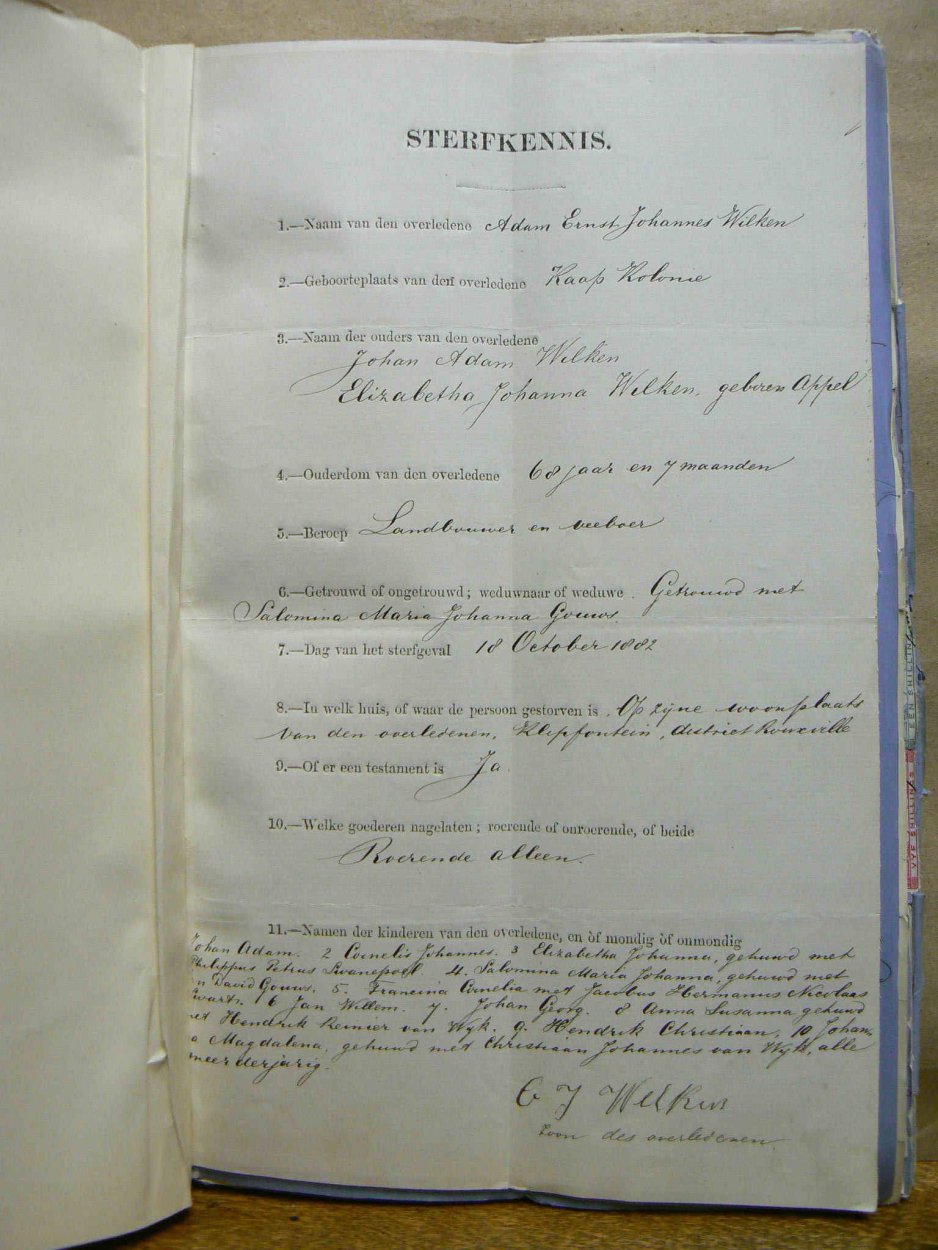 STERFKENNIS.
1.—Naam van den overledene Adam Ernst Johannes Wilken
2.—Geboorteplaats van den overledene Kaap Kolonie
3.—Naam der ouders van den overledene
Johan Adam Wilken
Elizabetha Johanna Wilken, geboren Appel
4.—Ouderdom van den overledene 68 jaar en 7 maanden
5.—Beroep Landbouwer en veeboer
6.—Getrouwd of ongetrouwd; weduwnaar of weduwe. Getrouwd met
Salomina Maria Johanna Gouws.
7.—Dag van het sterfgeval 18 October 1882
8.—In welk huis, of waar de persoon gestorven is. Op zyne woonplaats
van den overledenen, Klipfontein, district Rouxville
9.—Of er een testament is Ja.
10.—Welke goederen nagelaten; roerende of onroerende, of beide
Roerende alleen.
11.—Namen der kinderen van den overledene, en òf mondig òf onmondig
Johan Adam. 2 Cornelis Johannes. 3 Elizabetha Johanna, gehuwd met
Philippus Petrus Swanepoel 4. Salomina Maria Johanna, gehuwd met
n David Gouws. 5. Francina Cornelia met Jacobus Hermanus Nicolaas
wart. 6 Jan Willem. 7. Johan Georg. 8 Anna Susanna gehuwd
met Hendrik Reinier van Wyk. 9. Hendrik Christiaan. 10 Johan-
a Magdalena, gehuwd met Christiaan Johannes van Wyk, alle
meerderjarig.
C J Wilken
Zoon des overledenen
EEN SHILLING
VYF SHILLINGS